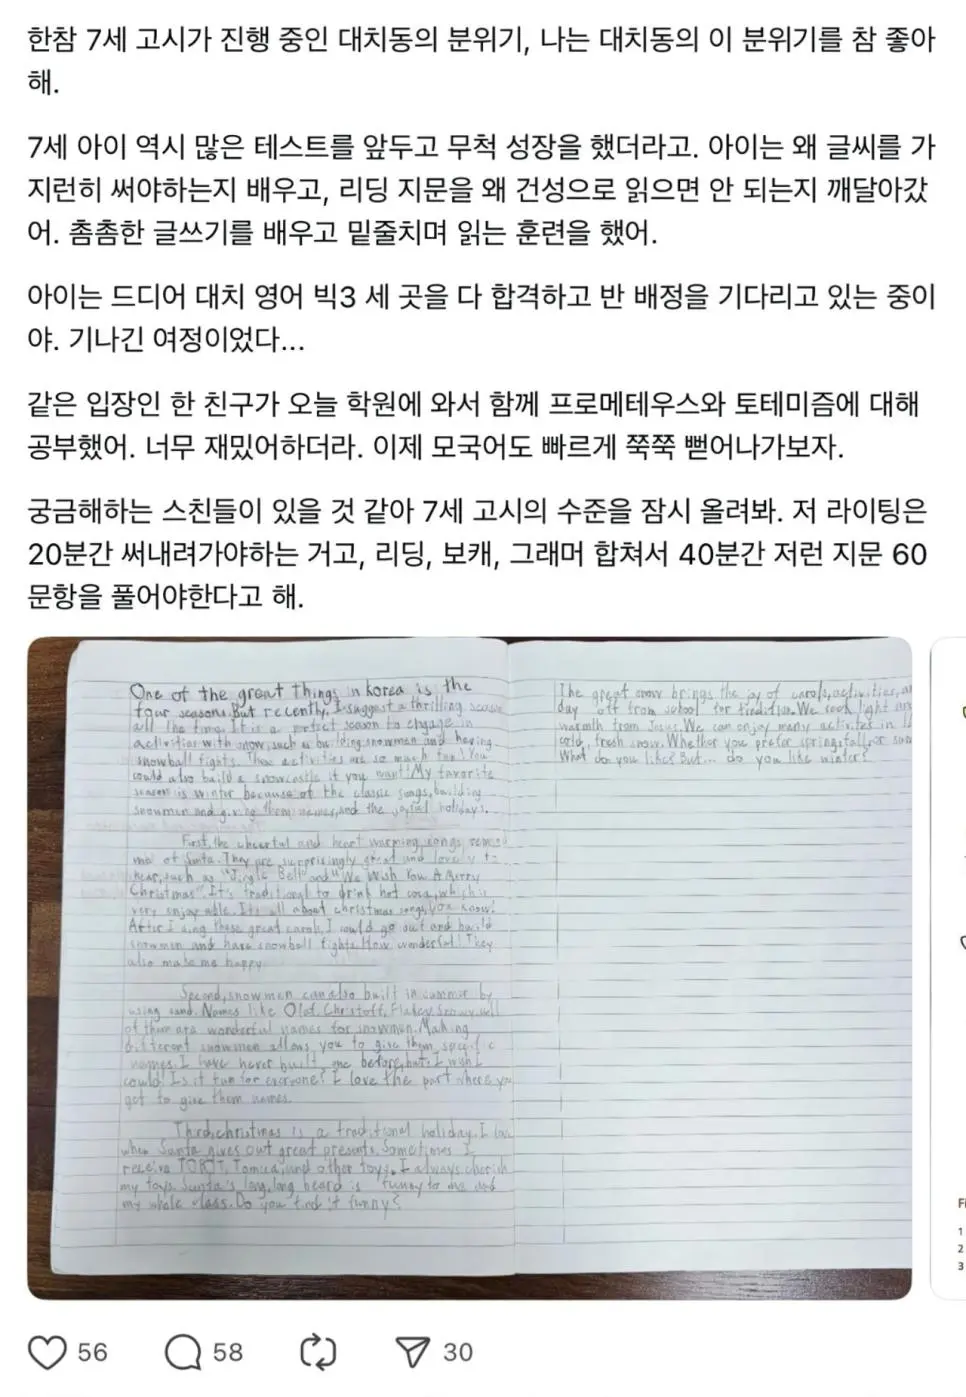 한참 7세 고시가 진행 중인 대치동의 분위기, 나는 대치동의 이 분위기를 참 좋아
해.
7세 아이 역시 많은 테스트를 앞두고 무척 성장을 했더라고. 아이는 왜 글씨를 가
지런히 써야하는지 배우고, 리딩 지문을 왜 건성으로 읽으면 안 되는지 깨달아갔
어. 촘촘한 글쓰기를 배우고 밑줄치며 읽는 훈련을 했어.
아이는 드디어 대치 영어 빅3 세 곳을 다 합격하고 반 배정을 기다리고 있는 중이
야. 기나긴 여정이었다...
같은 입장인 한 친구가 오늘 학원에 와서 함께 프로메테우스와 토테미즘에 대해
공부했어. 너무 재밌어하더라. 이제 모국어도 빠르게 쭉쭉 뻗어나가보자.
궁금해하는 스친들이 있을 것 같아 7세 고시의 수준을 잠시 올려봐. 저 라이팅은
20분간 써내려가야하는 거고, 리딩, 보캐, 그래머 합쳐서 40분간 저런 지문 60
문항을 풀어야한다고 해.
One of the great things in korea is the
four seasons. But recently, I suggest a thrilling season
all the time. It is a perfect season to engage in
activities with snow, such as building snowmen and having
snowball fights. These activities are so much fun! You
could also build a snowcastle if you want! My favorite
season is winter because of the classic songs, building
snowmen and giving them names, and the joyful holidays.
First, the cheerful and heart warming songs remind
me of Santa. They are surprisingly great and lovely to
hear, such as "Jingle Bell" and "We Wish You A Merry
Christmas". It's traditional to drink hot coco, which is
very enjoyable. It's all about christmas songs, you know!
After I sing those great carols, I could go out and build
snowmen and have snowball fights. How wonderful! They
also make me happy
Second, snowmen can also built in summer by
using sand. Names like Olaf, Christoff, Flakey Snowy, all
of them are wonderful names for snowmen. Making
different snowmen allows you to give them specific
names. I have never built one before, but I wish I
could! Is it fun for everyone? I love the part where you
get to give them names.
Third, christmas is a traditional holiday. I love
when Santa gives out great presents. Sometimes I
receive TOBOT, Tomica, and other toys. I always cherish
my toys. Santa's long, long beard is funny to me and
my whole class. Do you find it funny?
The great snow brings the joy of carols, activities, an
day off from school for tradition. We cook light and
warmth from Jesus. We can enjoy many activites in
cold, fresh snow. Whether you prefer spring, fall, or sum
What do you like? But... do you like winter?
56
58
30
Fi
1
2
3